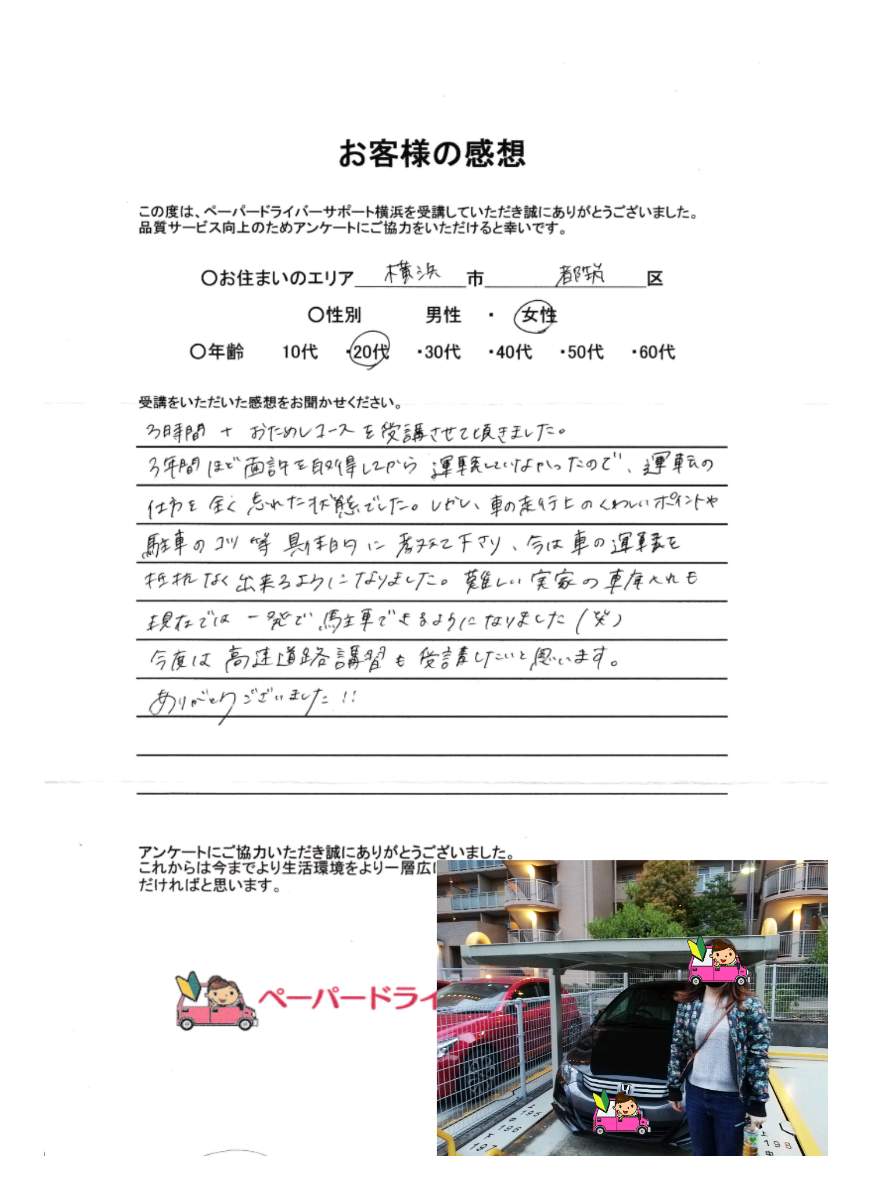 お客様の感想
この度は、ペーパードライバーサポート横浜を受講していただき誠にありがとうございました。
品質サービス向上のためアンケートにご協力をいただけると幸いです。
〇お住まいのエリア 横浜 市 都筑 区
〇性別 男性 ・ 女性
〇年齢 10代 ・20代 ・30代 ・40代 ・50代 ・60代
受講をいただいた感想をお聞かせください。
3時間 + おためしコースを受講させて頂きました。
3年間ほど免許を取得してから 運転していなかったので、運転の
仕方を全く忘れた状態でした。しかし、車の走行上のくわしいポイントや
駐車のコツ等 具体的に教えて下さり、今は車の運転を
抵抗なく出来るようになりました。難しい実家の車庫入れも
現在では一発で駐車できるようになりました(笑)
今度は高速道路講習も受講したいと思います。
ありがとうございました!!
アンケートにご協力いただき誠にありがとうございました。
これからは今までより生活環境をより一層広
だければと思います。
ペーパードライ
195
197
198